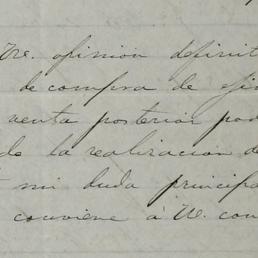 Ve. opinión definit
de compra de
venta posterior pod
de la realizacion de
mi duda principa
conviene á Ve. con